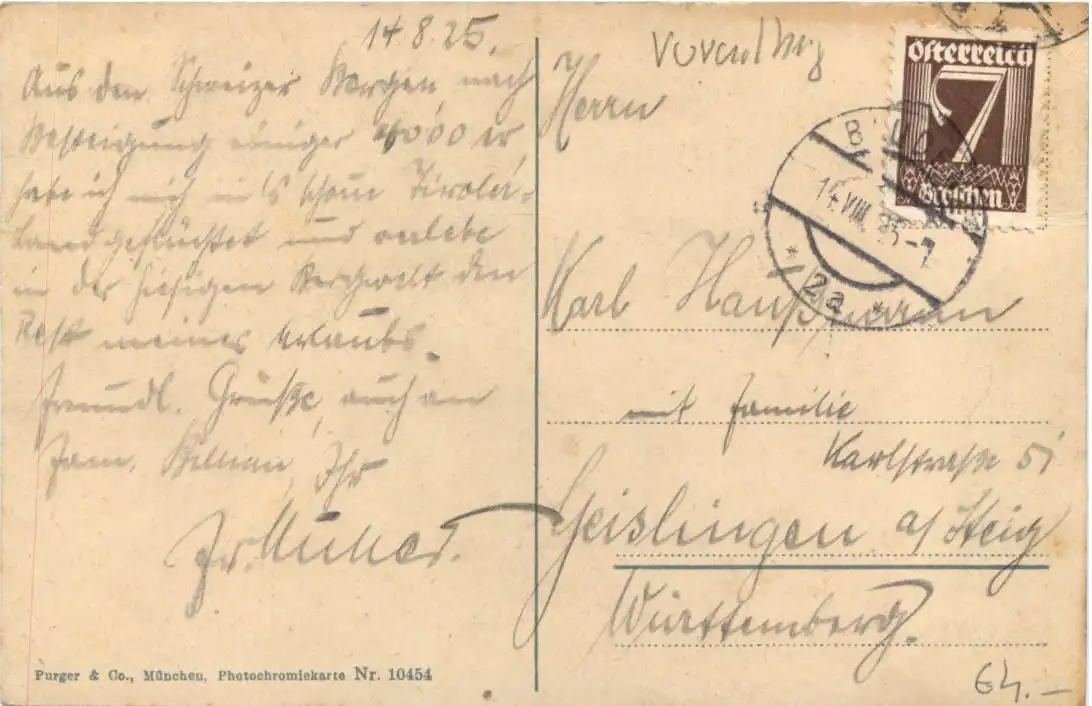 14.8.25.
Aus den Schweizer Bergen, nach
Besteigung einiger 4000 er,
habe ich mich in's schöne Tiroler-
land geflüchtet und verlebe
in der hiesigen Bergwelt den
Rest meines Urlaubs.
Freundl. Grüße, auch an
Fam. Ihr
Fr.
Herrn
Karl Haußmann
mit Familie
Karlstraße 51
Geislingen a/Steig
Württemberg.
Österreich
7
Groschen
14.VIII.25-7
* 2a *
64.-
Purger & Co., München, Photochromiekarte Nr. 10454